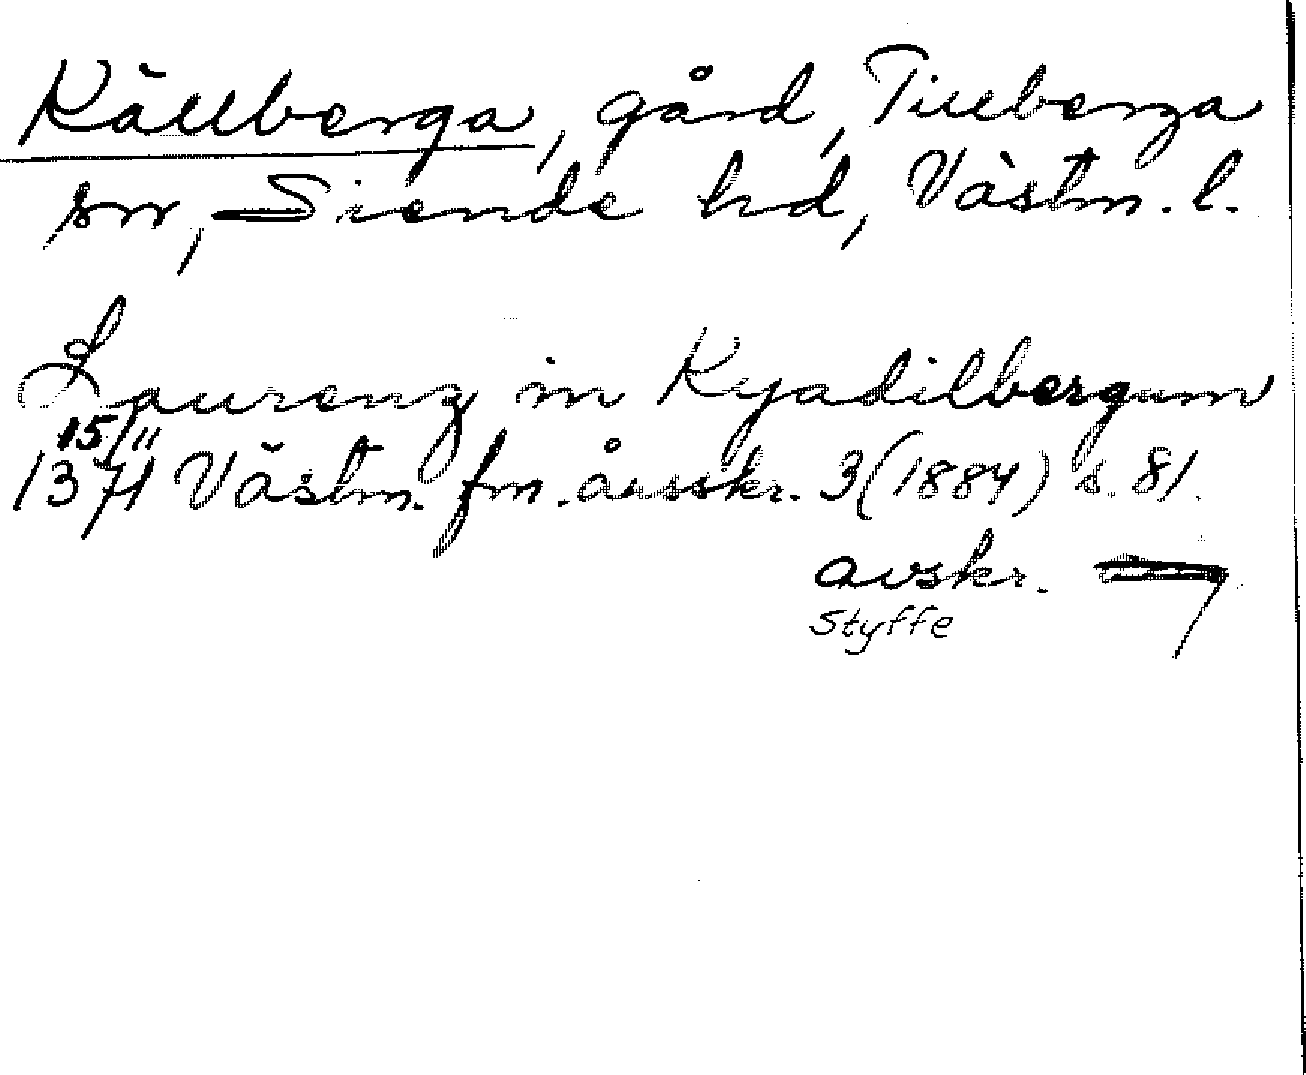 Källberga, gård, Tillberga
sn, Siende hd, Västm. l.
Laurenz in Kyadilbergum
15/11
1371 Västm. fm. årsskr. 3 (1884) s. 81.
avskr.
Styffe